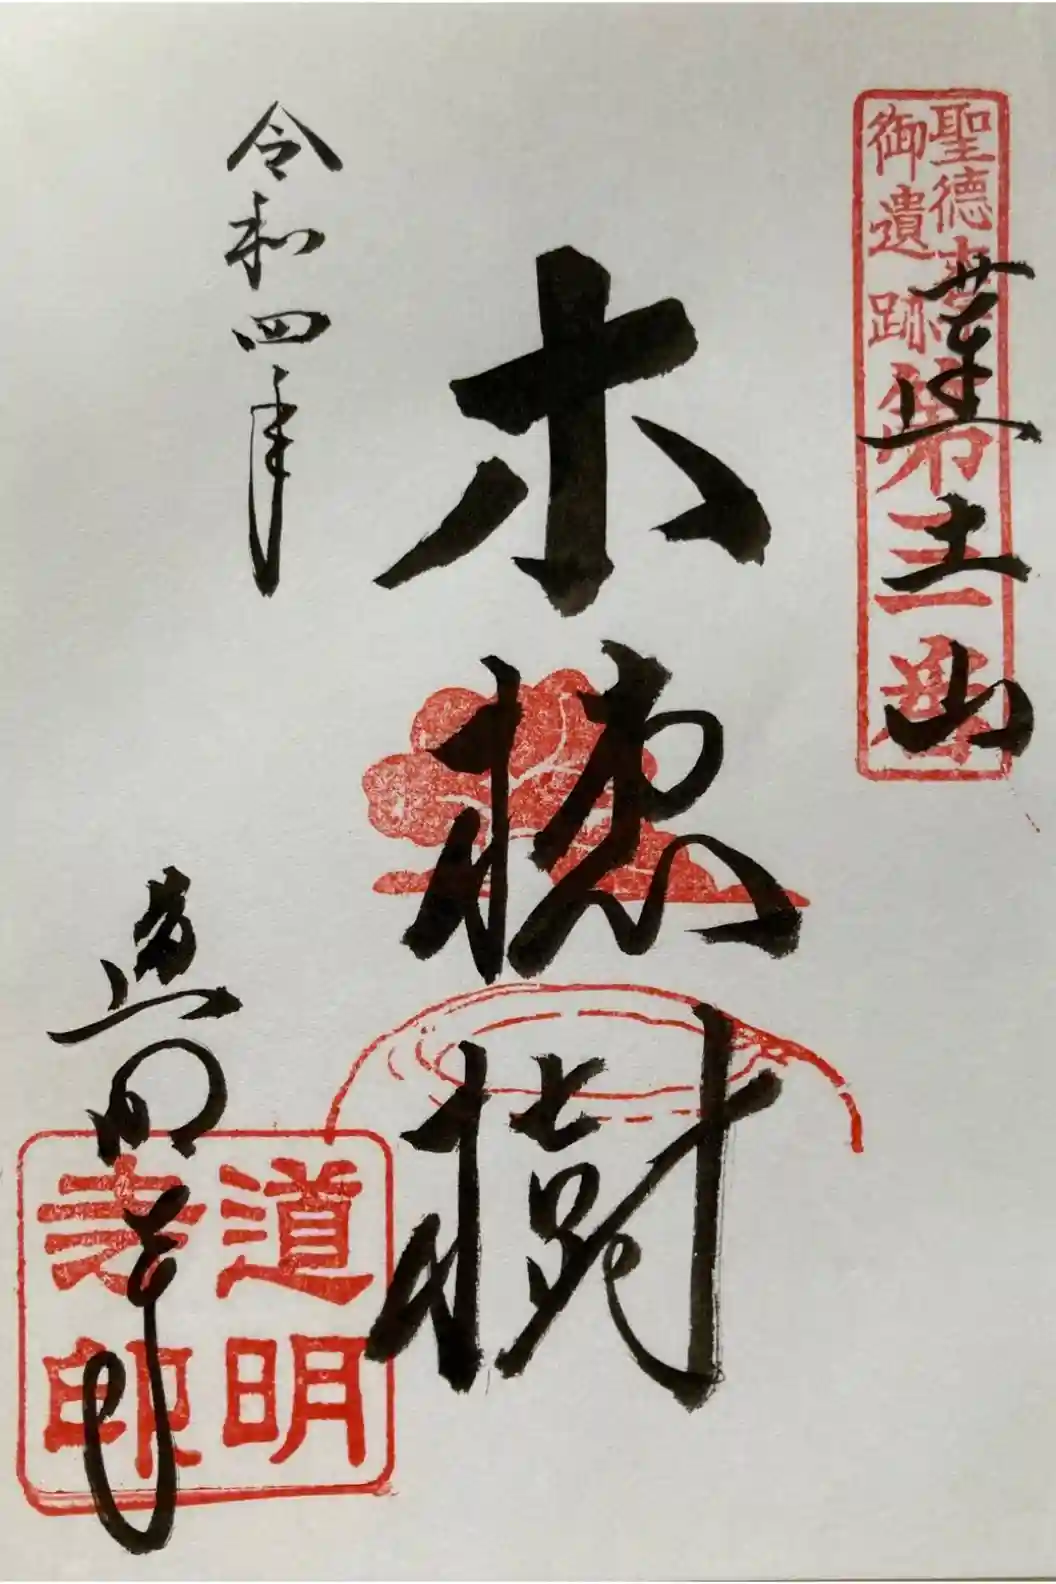 聖徳太子
御遺跡第三番
蓮土山
木槵樹
令和四年
道明寺
道明
寺印